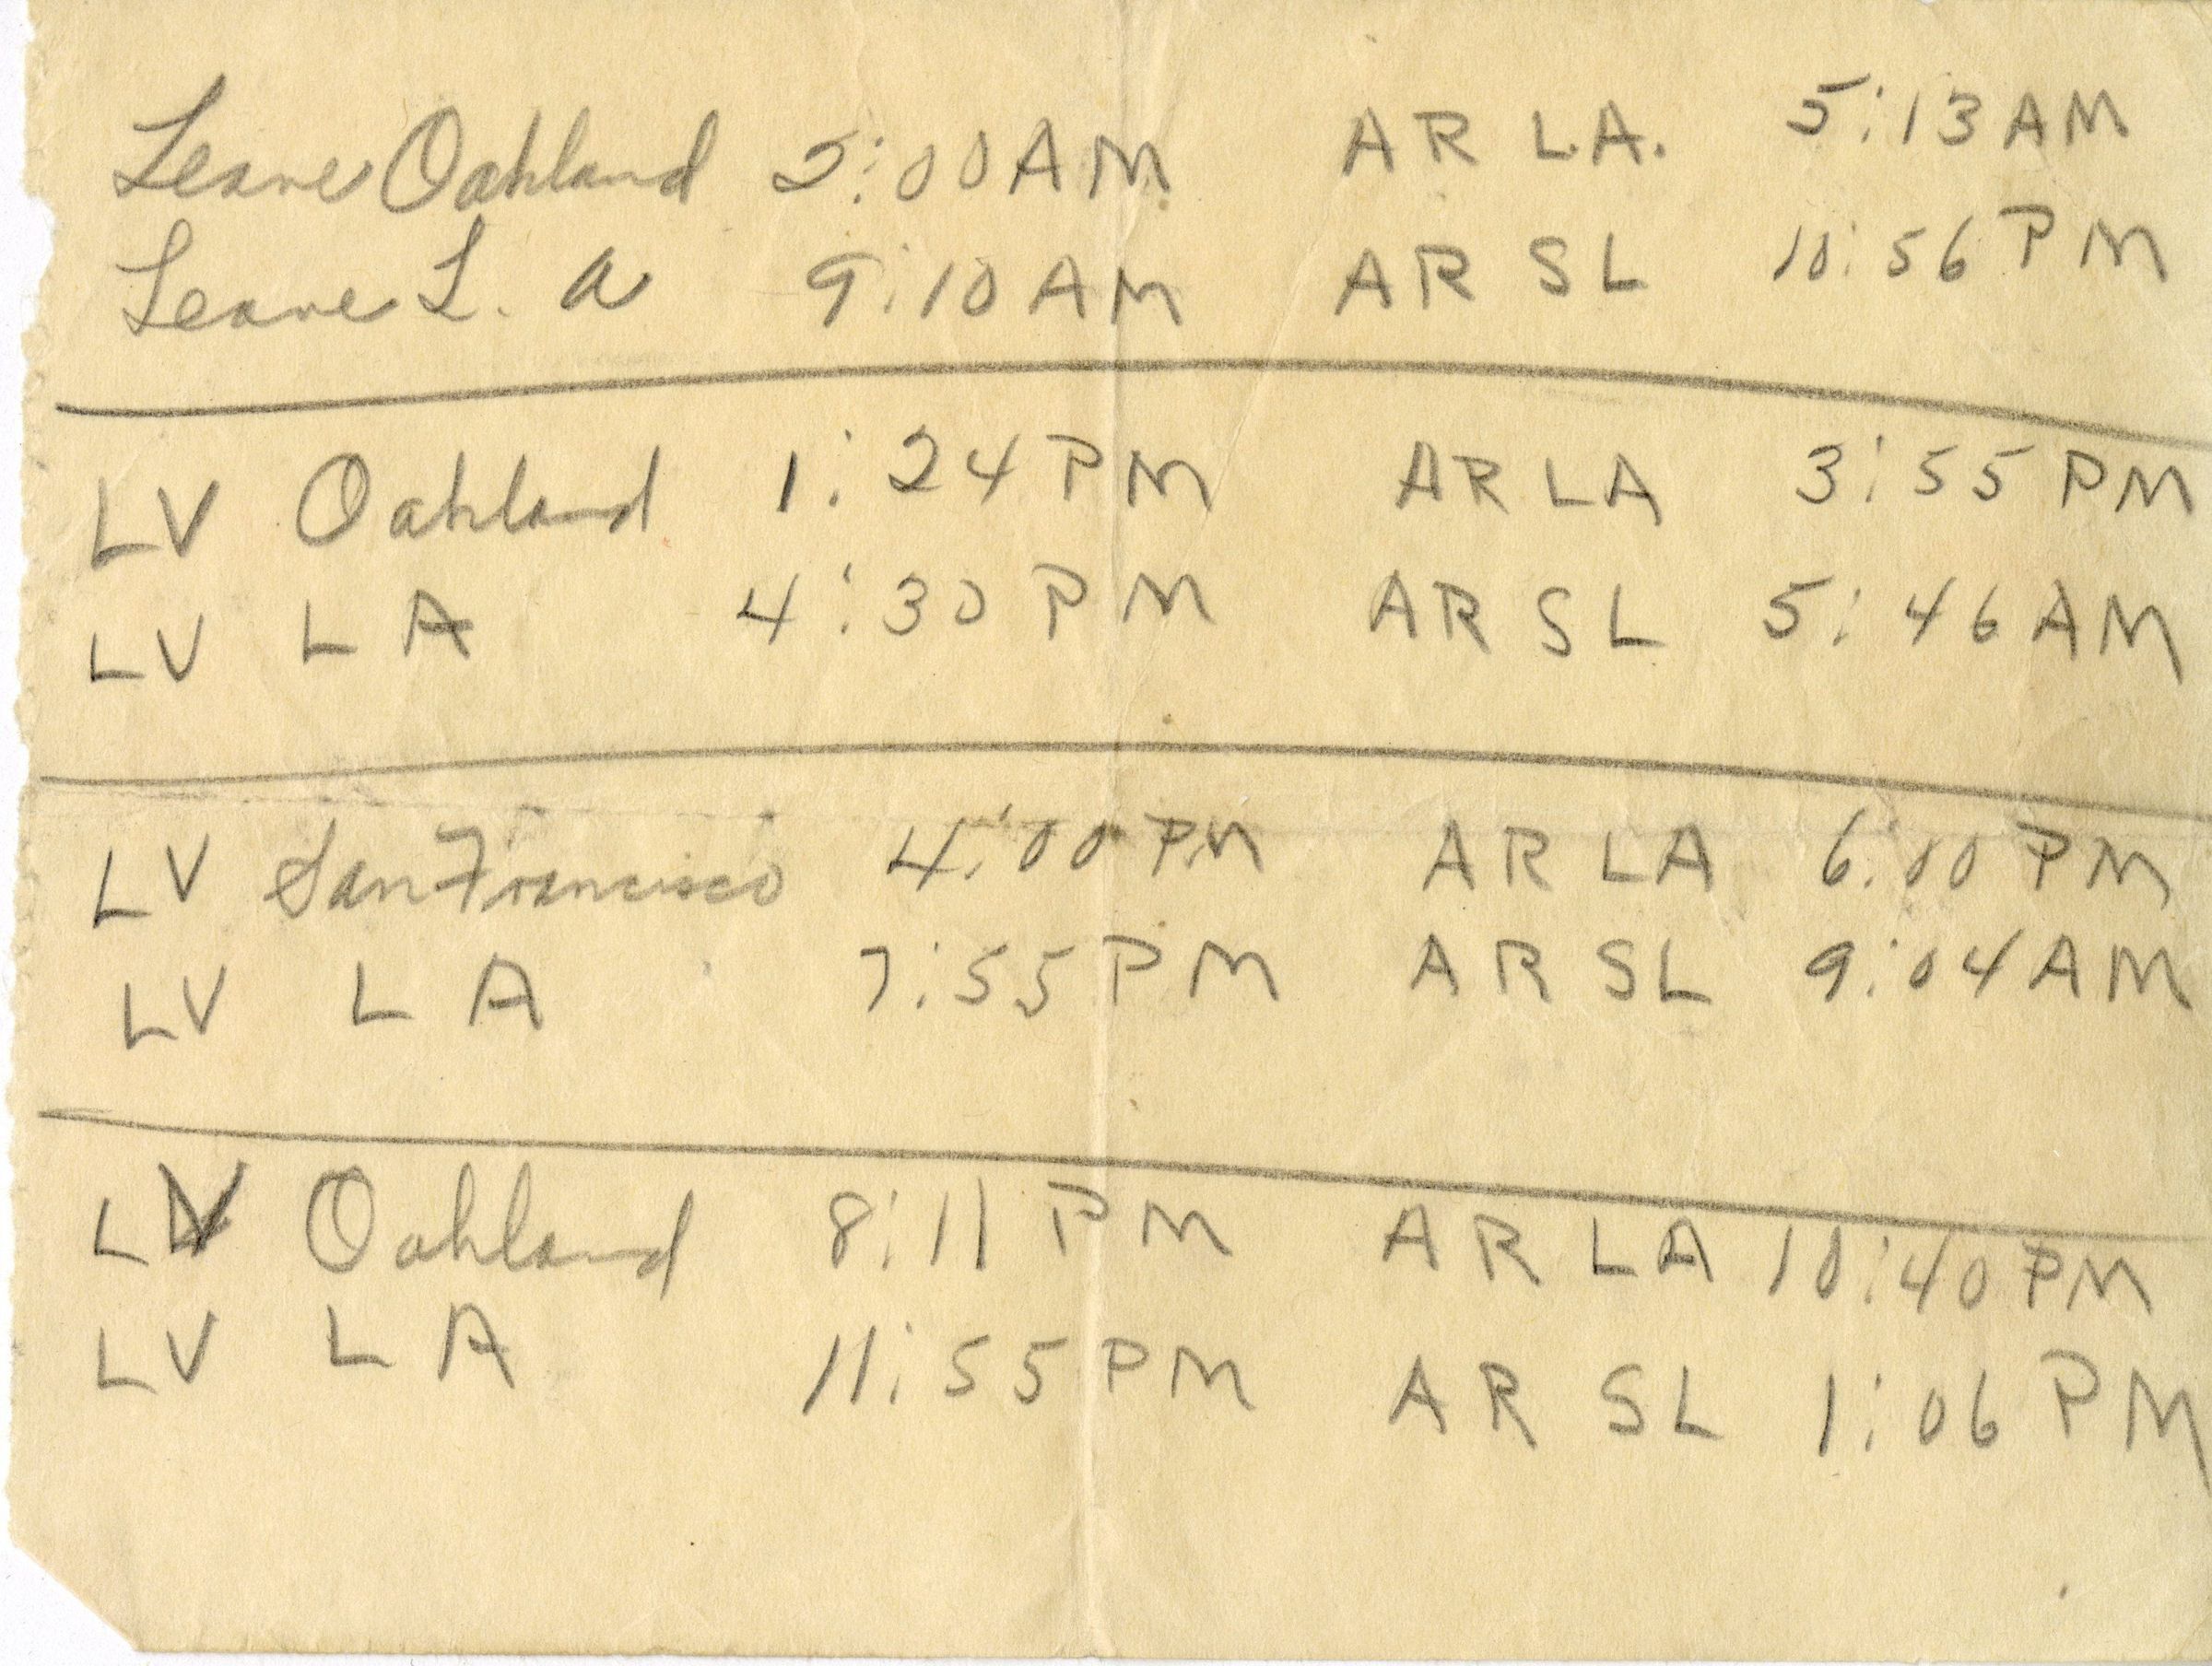 Leave Oakland 2:00 AM AR L.A. 5:13 AM
Leave L. A 9:10 AM AR SL 10:56 PM
LV Oakland 1:24 PM AR LA 3:55 PM
LV L A 4:30 PM AR SL 5:46 AM
LV San Francisco 4:00 PM AR LA 6:00 PM
LV L A 7:55 PM AR SL 9:04 AM
LV Oakland 8:11 PM AR LA 10:40 PM
LV L A 11:55 PM AR SL 1:06 PM